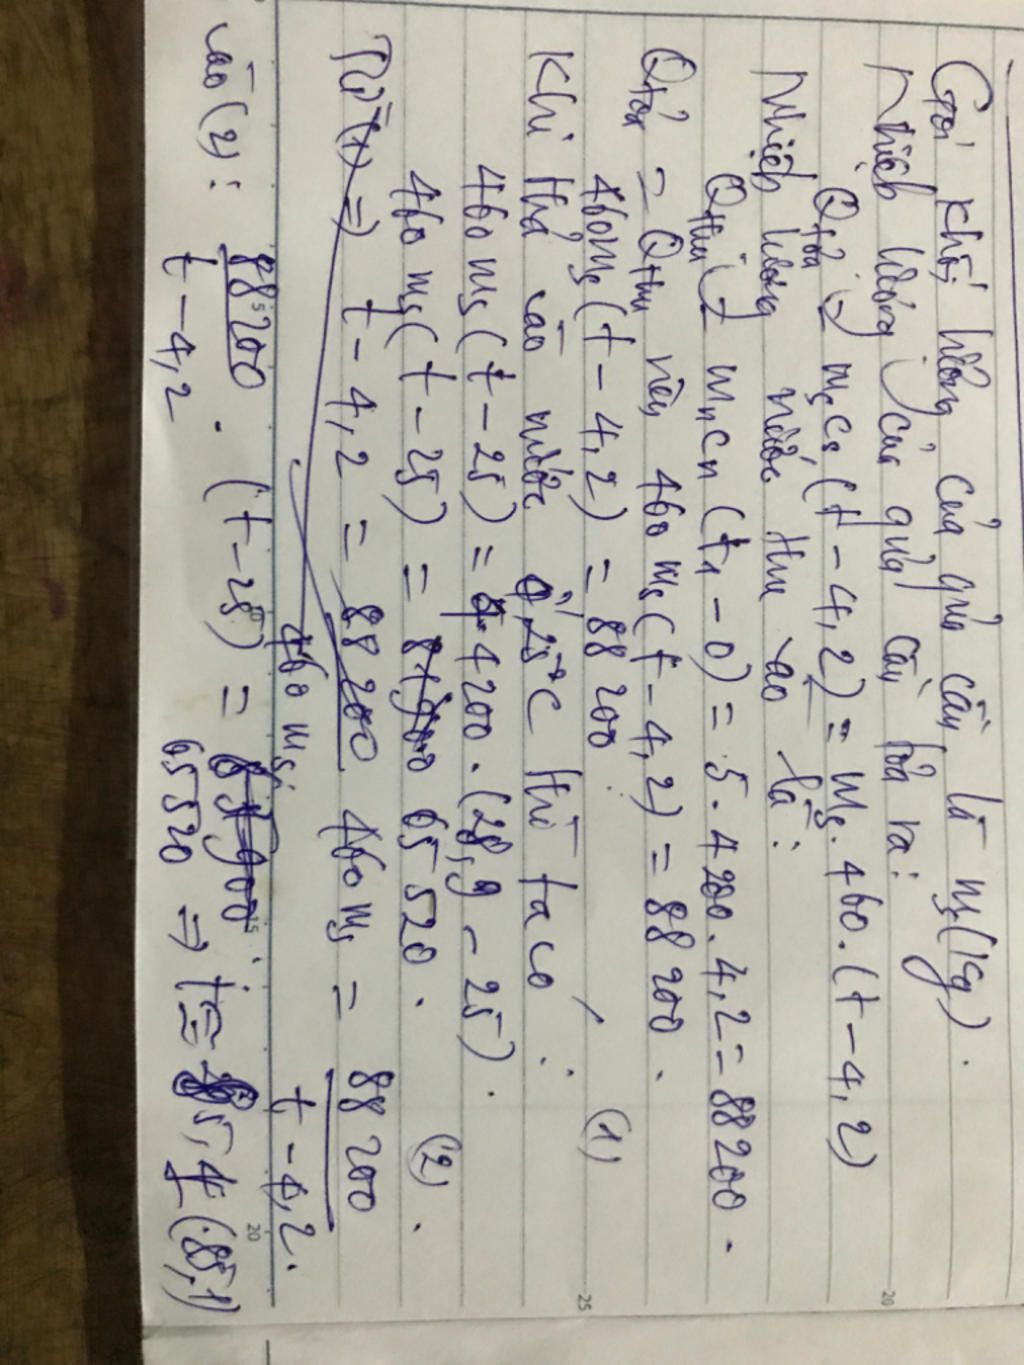 Gọi khối lượng của quả cầu là ms (kg).
Nhiệt lượng của quả cầu tỏa ra:
Qtỏa = ms cs (t - 4,2) = ms . 460 . (t - 4,2)
Nhiệt lượng nước thu vào là:
Qthu = mn cn (t1 - 0) = 5 . 4200 . 4,2 = 88200 .
Qtỏa = Qthu nên 460 ms (t - 4,2) = 88 200 .
460 ms (t - 4,2) = 88 200 (1)
Khi thả vào nước ở 25°C thì ta có :
460 ms (t - 25) = 4 . 4200 . (28,9 - 25) .
460 ms (t - 25) = 65 520 . (2) .
Từ (1) => t - 4,2 = 88 200 460 ms = 88 200 / t - 4,2 .
460 ms
vào (2) : 88 200 / t - 4,2 . (t - 25) = 65 520 => t = 85,1 (85,1)